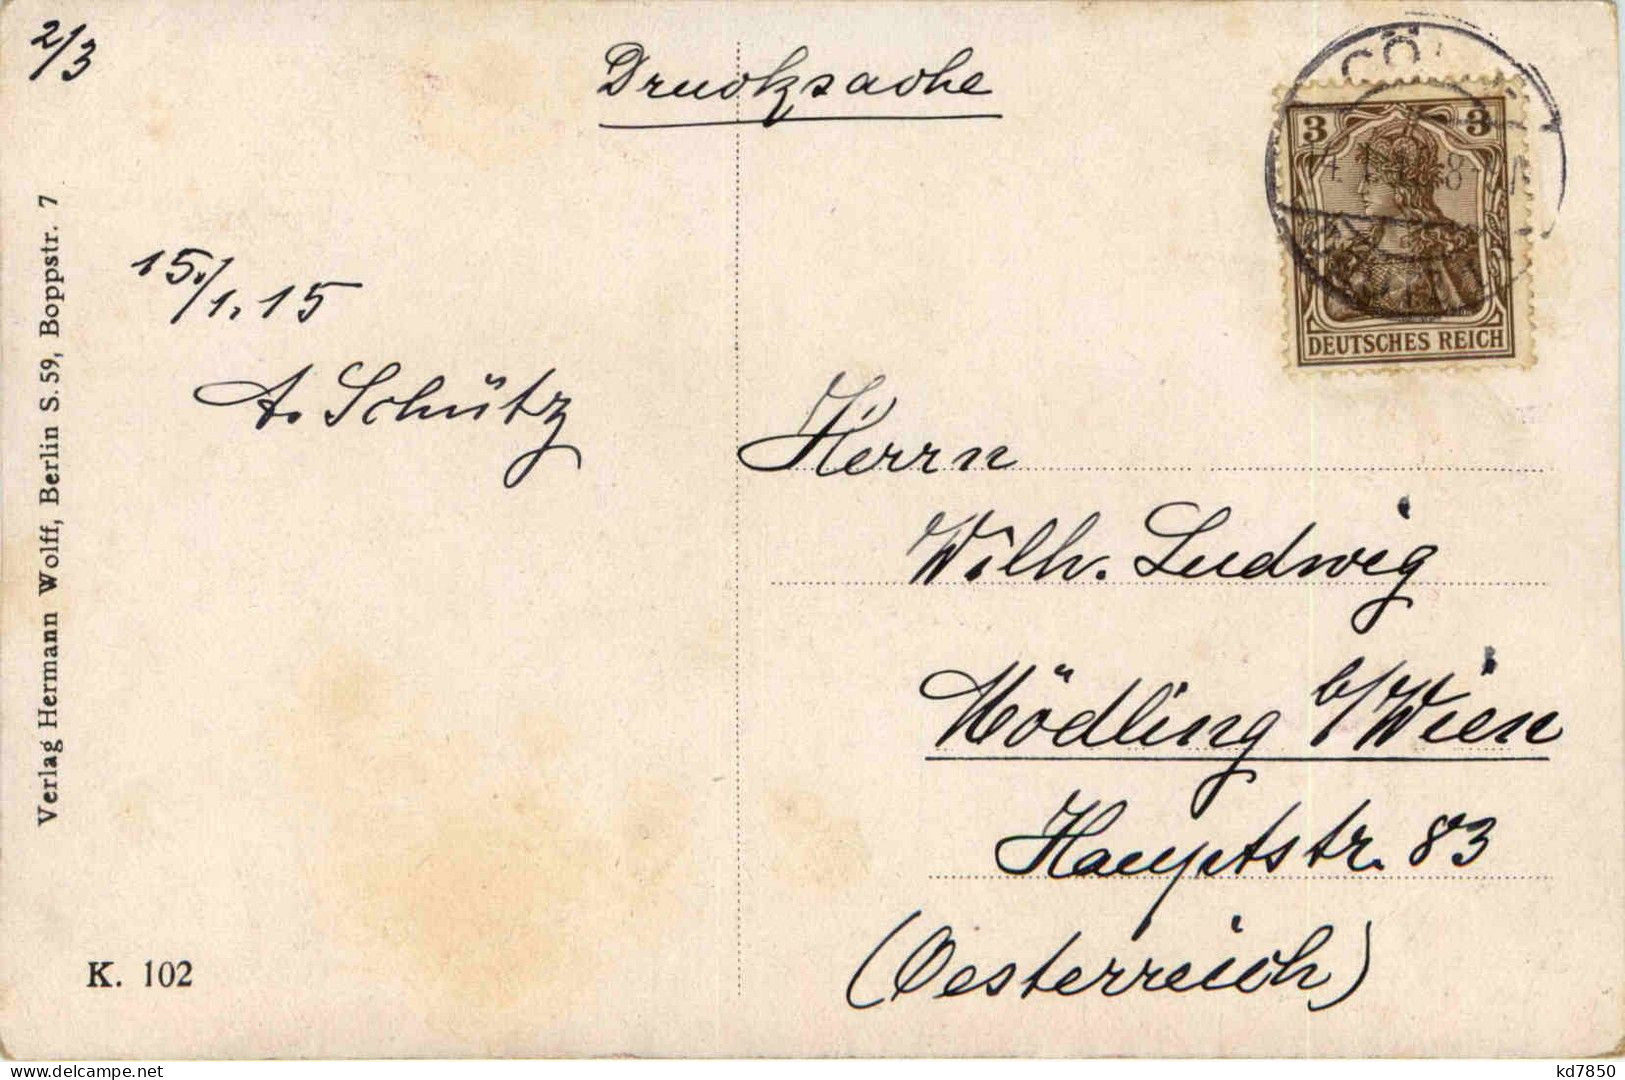 2/3
Drucksache
CÖ
3 3
DEUTSCHES REICH
15./1.15
A. Schütz
Herrn
Wilh. Ludwig
Mödling b/Wien
Hauptstr. 83
(Oesterreich)
Verlag Hermann Wolff, Berlin S. 59, Boppstr. 7
K. 102
delcampe.net
kd7850